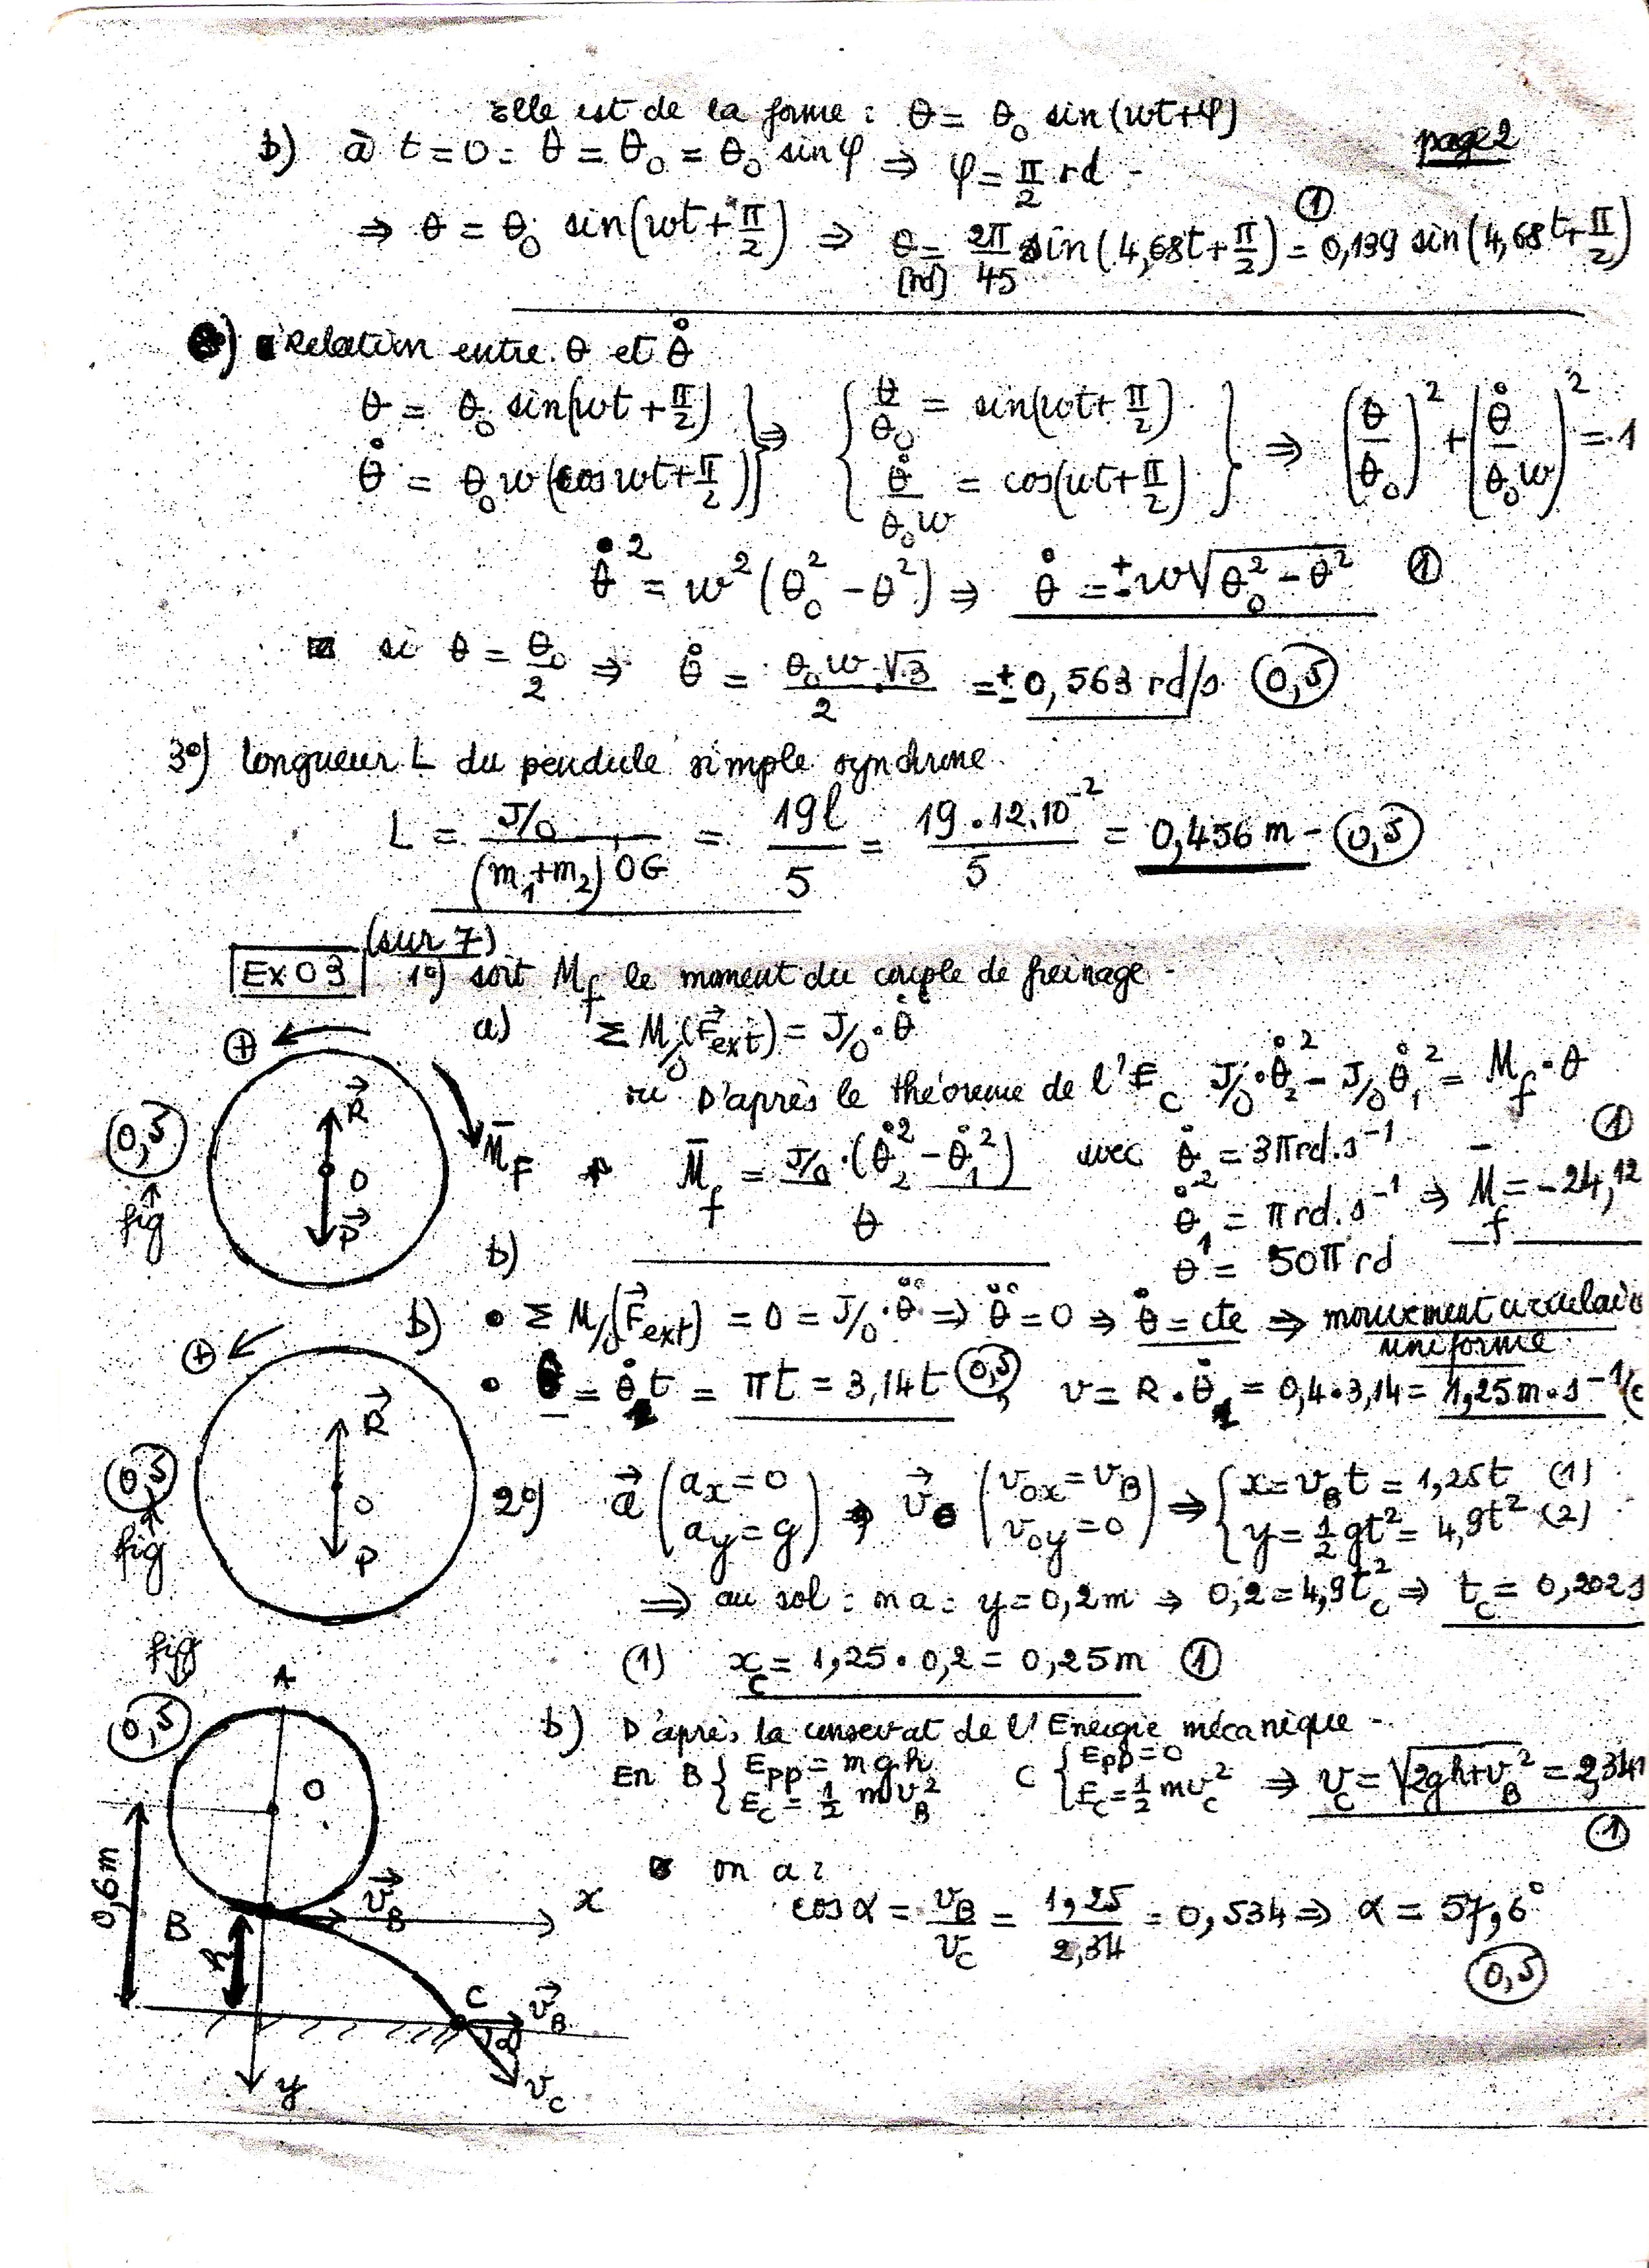 Elle est de la forme : θ = θ₀ sin(wt+φ)
page 2
b) à t=0 = θ = θ₀ = θ₀ sin φ ⇒ φ = π/2 rd -
⇒ θ = θ₀ sin(wt+π/2) ⇒ θ = 2π/45 sin(4,68t+π/2) = 0,139 sin(4,68t+π/2) ①
[rd]
Relation entre θ et θ̊
θ = θ₀ sin(wt+π/2) } ⇒ { θ/θ₀ = sin(wt+π/2) } ⇒ (θ/θ₀)² + (θ̊/θ₀w)² = 1
θ̊ = θ₀w (cos wt+π/2)) } { θ̊/θ₀w = cos(wt+π/2) }
θ̊² = w²(θ₀² - θ²) ⇒ θ̊ = ±w√(θ₀² - θ²) ①
si θ = θ₀/2 ⇒ θ̊ = θ₀w.√3/2 = ±0,563 rd/s (0,5)
3°) longueur L du pendule simple synchrone.
L = J/₀ / (m₁+m₂) OG = 19l/5 = 19.12.10⁻²/5 = 0,456 m - (0,5)
Ex 03 (sur 7) 1°) soit M_f le moment du couple de freinage -
a) Σ M/₀(F⃗ext) = J/₀.θ̊
ou D'après le théoreme de l'Ec J/₀.θ̊₂² - J/₀θ̊₁² = M_f.θ
①
M̄_f = J/₀.(θ̊₂² - θ̊₁²) / θ avec θ̊₂ = 3π rd.s⁻¹
θ̊₁ = π rd.s⁻¹ ⇒ M̄_f = -24,12
θ = 50π rd
⊕
R⃗
O
P⃗
M̄_F
(0,5)
fig
b)
b) • Σ M/₀(F⃗ext) = 0 = J/₀.θ̈ ⇒ θ̈ = 0 ⇒ θ̊ = cte ⇒ mouvement circulaire
uniforme
• θ = θ̊₁t = πt = 3,14t (0,5), v = R.θ̊₁ = 0,4.3,14 = 1,25m.s⁻¹
⊕
R⃗
O
P
(0,5)
fig
2°) a⃗ (aₓ=0, a_y=g) ⇒ v⃗₀ (v₀ₓ=v_B, v₀y=0) ⇒ { x=v_B t = 1,25t (1)
y = 1/2 gt² = 4,9t² (2)
⇒ au sol : on a : y=0,2m ⇒ 0,2=4,9t_c² ⇒ t_c = 0,202s
(1) x_c = 1,25.0,2 = 0,25m ①
b) D'après la conservat de l'Energie mécanique -
En B { Epp = mgh C { Epp = 0 ⇒ v_c = √(2gh+v_B²) = 2,34m
Ec = 1/2 mv_B² Ec = 1/2 mv_c²
①
on a :
cos α = v_B/v_c = 1,25/2,34 = 0,534 ⇒ α = 57,6°
(0,5)
fig
(0,5)
A
O
0,6m
B
v⃗_B
x
h
C
v⃗_B
α
v_c
y